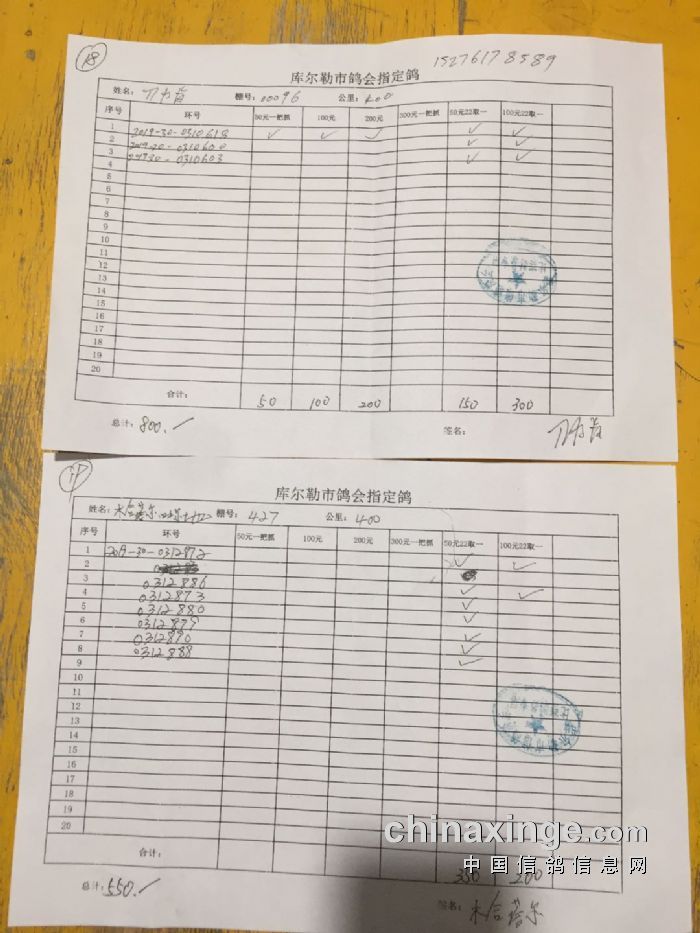 18
15276178589
库尔勒市鸽会指定鸽
姓名： 棚号：00096 公里：400
序号 环号 50元一把抓 100元 200元 300元一把抓 50元22取一 100元22取一
1 2019-30-0310618 ✓ ✓ ✓ ✓ ✓
2 2019-30-0310600 ✓ ✓
3 201930-0310603 ✓ ✓
4
5
6
7
8
9
10
11
12
13
14
15
16
17
18
19
20
合计： 50 100 200 150 300
总计：800.- 签名：
17
库尔勒市鸽会指定鸽
姓名：木合塔尔 棚号：427 公里：400
序号 环号 50元一把抓 100元 200元 300元一把抓 50元22取一 100元22取一
1 2019-30-0312872 ✓ ✓
2
3 0312886 ✓
4 0312873 ✓ ✓
5 0312880 ✓
6 0312879
7 0312890 ✓
8 0312888 ✓
9 ✓
10
11
12
13
14
15
16
17
18
19
20
合计： 350 200
总计：550.- 签名：木合塔尔
chinaxinge.com
中国信鸽信息网